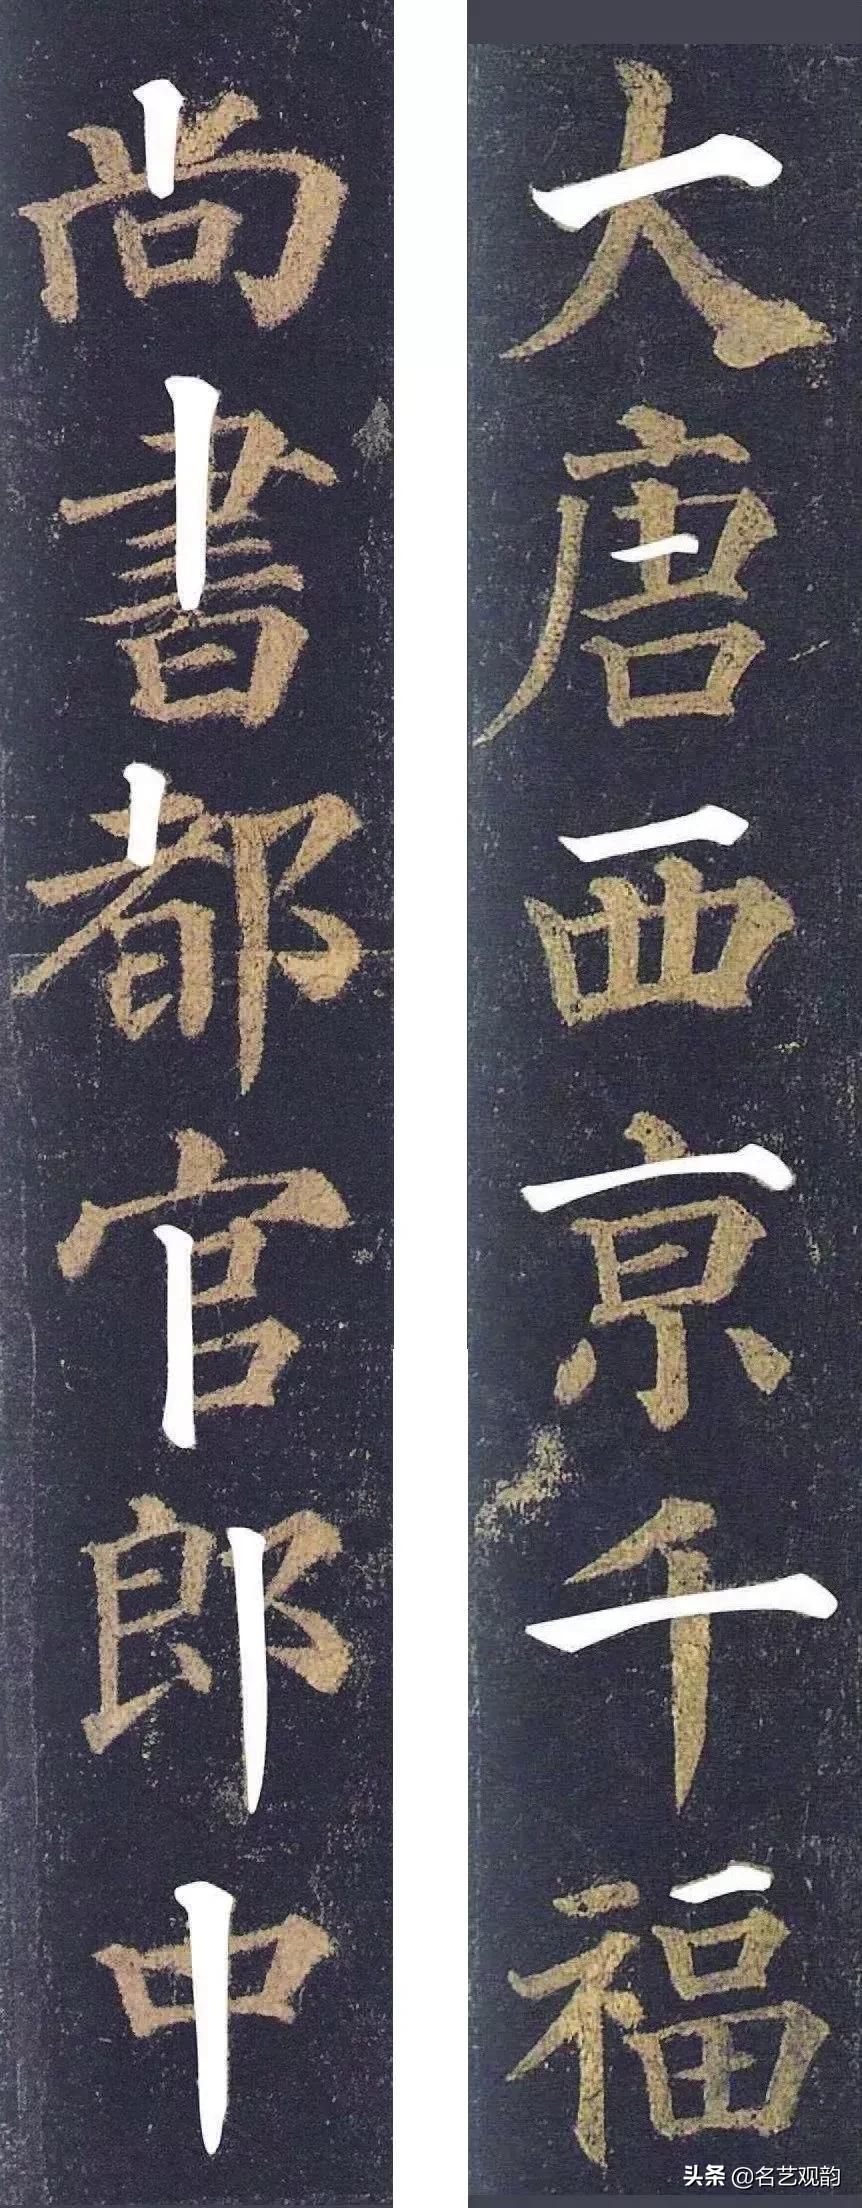 大唐西京千福
尚書都官郎中
头条 @名艺观韵